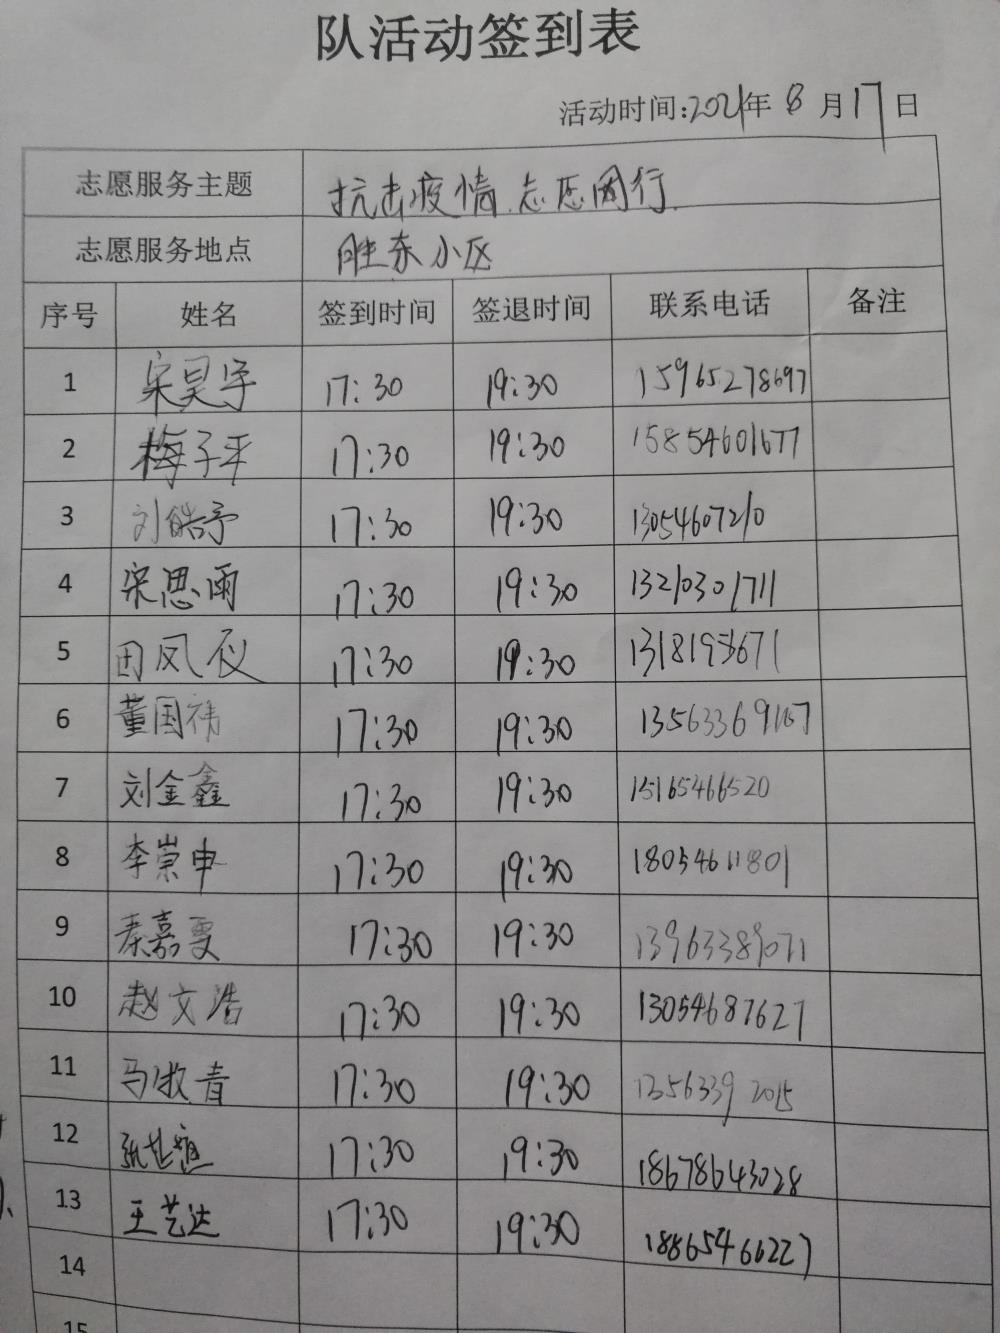 队活动签到表
活动时间:2021年8月17日
志愿服务主题 抗击疫情.志愿同行.
志愿服务地点 胜东小区
序号 姓名 签到时间 签退时间 联系电话 备注
1 宋昊宇 17:30 19:30 15965278697
2 梅子平 17:30 19:30 15854601677
3 刘皓予 17:30 19:30 13054607210
4 宋思雨 17:30 19:30 13210301711
5 田凤仪 17:30 19:30
6 董国祎 17:30 19:30
7 刘金鑫 17:30 19:30 15165466520
8 李崇申 17:30 19:30 18054611801
9 秦嘉雯 17:30 19:30 13963389071
10 赵文浩 17:30 19:30 13054687627
11 马牧青 17:30 19:30 13563392015
12 17:30 19:30 18678643028
13 王艺达 17:30 19:30 18865466227
14
15